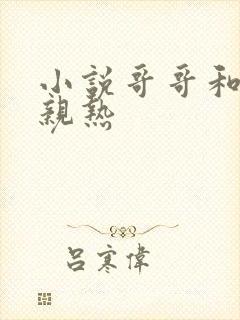 小説哥哥和
親熱
吕寒偉